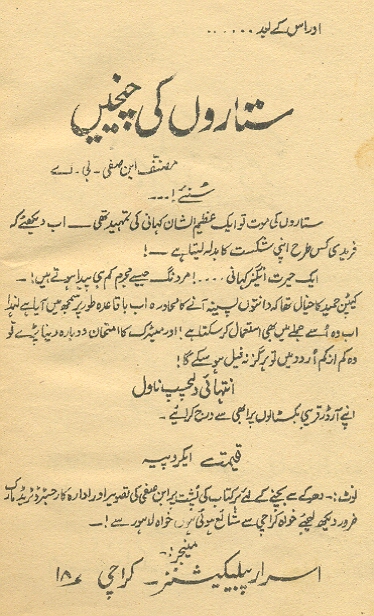 اور اس کے بعد ......
ستاروں کی چیخیں
مصنف ابن صفی - بی - اے
سُنیئے! ...
ستاروں کی موت تو ایک عظیم الشان کہانی کی تمہید تھی — اب دیکھئے کہ
فریدی کس طرح اپنی شکست کا بدلہ لیتا ہے — !
ایک حیرت انگیز کہانی .... ! مردنگ جیسے مجرم کم ہی پیدا ہوتے ہیں! -
کیپٹن حمید کا خیال تھا کہ دانتوں پسینہ آنے کا محاورہ اب باقاعدہ طور پر سمجھ میں آیا ہے لہٰذا
اب وہ اُسے جملے میں بھی استعمال کر سکتا ہے! اور میٹرک کا امتحان دوبارہ دینا پڑے تو
وہ کم از کم اُردو میں تو ہرگز نہ فیل ہو سکے گا!
انتہائی دلچسپ ناول
اپنے آرڈر قریبی بکسٹالوں پر ابھی سے درج کرائیے -
قیمت ایکروپیہ
نوٹ :- دھوکے سے بچنے کے لئے ہر کتاب کی پُشت پر ابن صفی کی تصویر اور ادارہ کا رجسٹرڈ ٹریڈ مارک
ضرور دیکھ لیجئے خواہ کراچی سے شائع ہوئی ہوں خواہ لاہور سے! —
منیجر :-
اسرار پبلیکیشنز - کراچی ۱۸